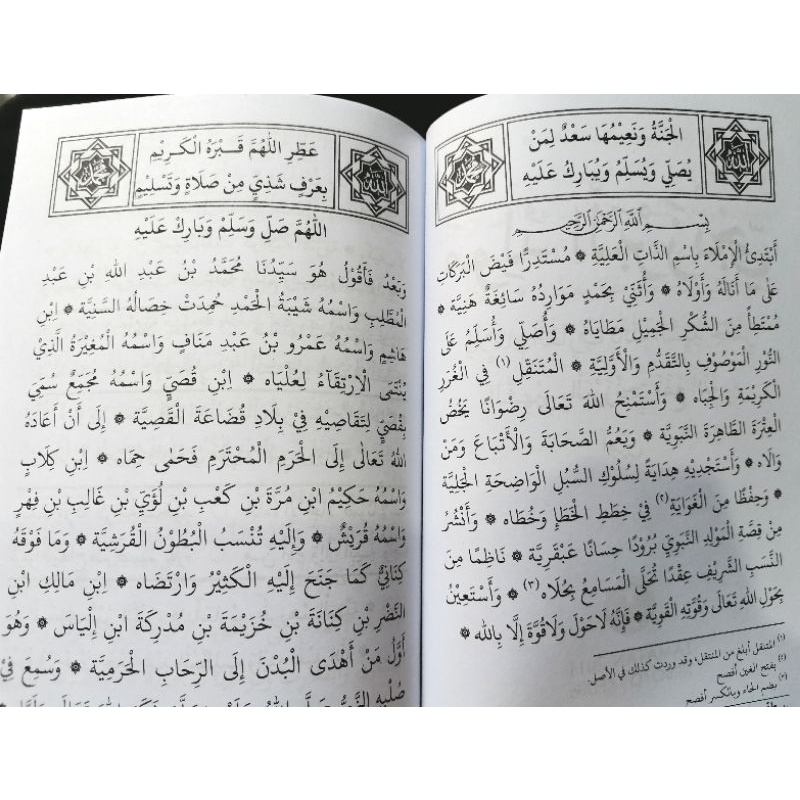 الْجَنَّةُ وَنَعِيْمُهَا سَعْدٌ لِمَنْ
يُصَلِّي وَيُسَلِّمُ وَيُبَارِكُ عَلَيْهِ
بِسْمِ اللهِ الرَّحْمٰنِ الرَّحِيْمِ
أَبْتَدِئُ الْإِمْلَاءَ بِاسْمِ الذَّاتِ الْعَلِيَّةِ ۞ مُسْتَدِرًّا فَيْضَ الْبَرَكَاتِ
عَلَى مَا أَنَالَهُ وَأَوْلَاهُ ۞ وَأُثَنِّيْ بِحَمْدٍ مَوَارِدُهُ سَائِغَةٌ هَنِيَّة ۞
مُمْتَطِأً مِنَ الشُّكْرِ الْجَمِيْلِ مَطَايَاهُ ۞ وَأُصَلِّيْ وَأُسَلِّمُ عَلَى
النُّوْرِ الْمَوْصُوْفِ بِالتَّقَدُّمِ وَالْأَوَّلِيَّةِ ۞ الْمُتَنَقِّلِ (١) فِي الْغُرَرِ
الْكَرِيْمَةِ وَالْجِبَاه ۞ وَأَسْتَمْنِحُ اللهَ تَعَالَى رِضْوَانًا يَخُصُّ
الْعِتْرَةَ الطَّاهِرَةَ النَّبَوِيَّة ۞ وَيَعُمُّ الصَّحَابَةَ وَالْأَتْبَاعَ وَمَنْ
وَالَاه ۞ وَأَسْتَجْدِيْهِ هِدَايَةً لِسُلُوْكِ السُّبُلِ الْوَاضِحَةِ الْجَلِيَّة
۞ وَحِفْظًا مِنَ الْغَوَايَةِ (٢) فِيْ خِطَطِ الْخَطَإِ وَخُطَاه ۞ وَأَنْشُرُ
مِنْ قِصَّةِ الْمَوْلِدِ النَّبَوِيِّ بُرُوْدًا حِسَانًا عَبْقَرِيَّة ۞ نَاظِمًا مِنَ
النَّسَبِ الشَّرِيْفِ عِقْدًا تُحَلَّى الْمَسَامِعُ بِحُلَاه (٣) ۞ وَأَسْتَعِيْنُ
بِحَوْلِ اللهِ تَعَالَى وَقُوَّتِهِ الْقَوِيَّة ۞ فَإِنَّهُ لَا حَوْلَ وَلَا قُوَّةَ إِلَّا بِالله ۞
(١) المتنقل أبلغ من المنتقل، وقد وردت كذلك في الأصل.
(٢) بفتح الغين أفصح
(٣) بضم الحاء وبالكسر أفصح
عَطِّرِ اللّٰهُمَّ قَبْرَهُ الْكَرِيْم
بِعَرْفٍ شَذِيٍّ مِنْ صَلَاةٍ وَتَسْلِيْم
اللّٰهُمَّ صَلِّ وَسَلِّمْ وَبَارِكْ عَلَيْهِ
وَبَعْدُ فَأَقُوْلُ هُوَ سَيِّدُنَا مُحَمَّدُ بْنُ عَبْدِ اللهِ بْنِ عَبْدِ
الْمُطَّلِبِ وَاسْمُهُ شَيْبَةُ الْحَمْدِ حُمِدَتْ خِصَالُهُ السَّنِيَّة ۞ ابْنِ
هَاشِمٍ وَاسْمُهُ عَمْرُو بْنُ عَبْدِ مَنَافٍ وَاسْمُهُ الْمُغِيْرَةُ الَّذِيْ
يُنْتَمَى الْاِرْتِقَاءُ لِعُلْيَاه ۞ ابْنِ قُصَيٍّ وَاسْمُهُ مُجَمِّعٌ سُمِّيَ
بِقُصَيٍّ لِتَقَاصِيْهِ فِيْ بِلَادِ قُضَاعَةَ الْقَصِيَّة ۞ إِلَى أَنْ أَعَادَهُ
اللهُ تَعَالَى إِلَى الْحَرَمِ الْمُحْتَرَمِ فَحَمَى حِمَاه ۞ ابْنِ كِلَابٍ
وَاسْمُهُ حَكِيْمُ ابْنِ مُرَّةَ بْنِ كَعْبِ بْنِ لُؤَيِّ بْنِ غَالِبِ بْنِ فِهْرٍ
وَاسْمُهُ قُرَيْشٌ ۞ وَإِلَيْهِ تُنْسَبُ الْبُطُوْنُ الْقُرَشِيَّة ۞ وَمَا فَوْقَهُ
كِنَانِيٌّ كَمَا جَنَحَ إِلَيْهِ الْكَثِيْرُ وَارْتَضَاه ۞ ابْنِ مَالِكِ ابْنِ
النَّضْرِ بْنِ كِنَانَةَ بْنِ خُزَيْمَةَ بْنِ مُدْرِكَةَ ابْنِ إِلْيَاس ۞ وَهُوَ
أَوَّلُ مَنْ أَهْدَى الْبُدْنَ إِلَى الرِّحَابِ الْحَرَمِيَّة ۞ وَسُمِعَ فِيْ
صُلْبِهِ النَّبِيُّ